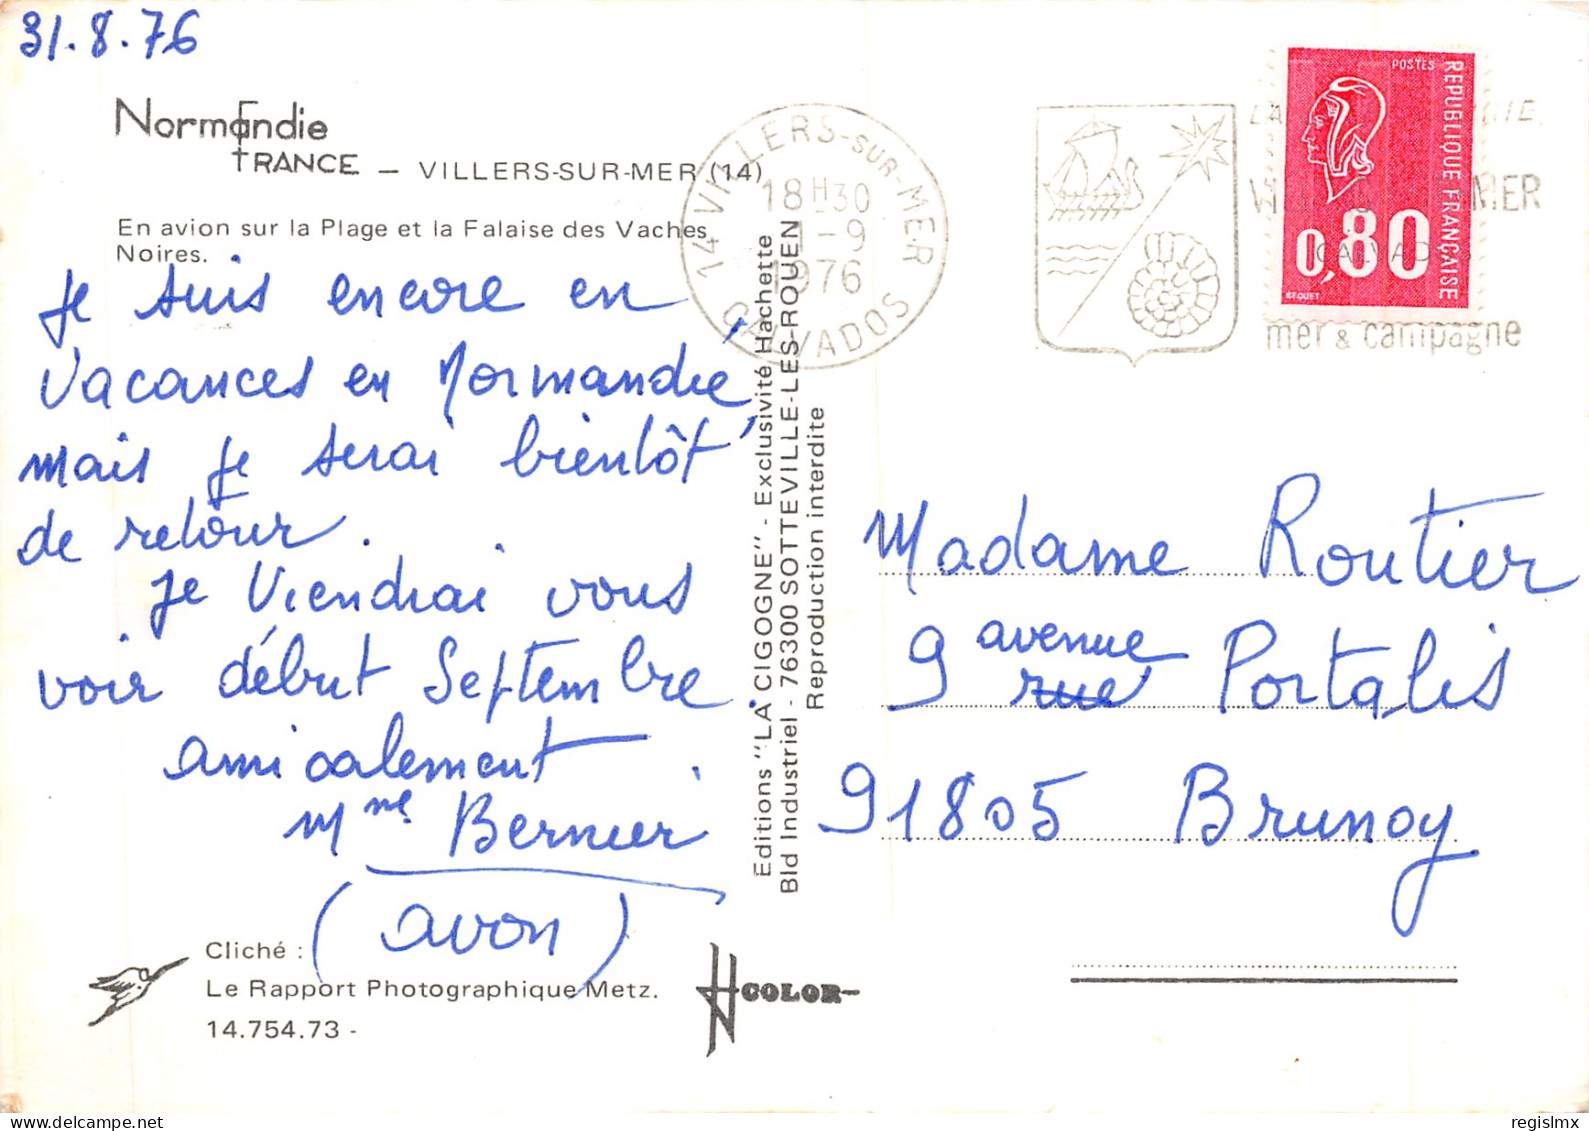 31.8.76
Normandie
FRANCE — VILLERS-SUR-MER (14)
En avion sur la Plage et la Falaise des Vaches
Noires.
Je suis encore en
Vacances en Normandie,
mais je serai bientôt
de retour.
Je Viendrai vous
voir début Septembre.
amicalement
Mme Bernier
(avon)
Cliché :
Le Rapport Photographique Metz.
14.754.73 -
COLOR
Editions "LA CIGOGNE" - Exclusivité Hachette
Bld Industriel - 76300 SOTTEVILLE-LES-ROUEN
Reproduction interdite
14 VILLERS-SUR-MER
18H30
1-9
1976
CALVADOS
MER
CALVADOS
mer & campagne
POSTES
REPUBLIQUE FRANÇAISE
0,80
BEQUET
Madame Routier
9 avenue Portalis
rue
91805 Brunoy
regislmx